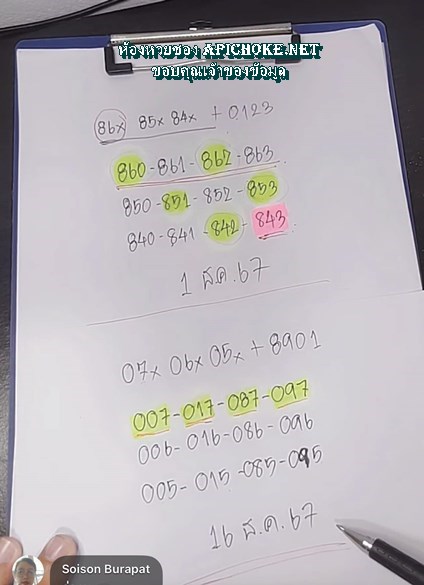 ห้องหวยซอง APICHOKE.NET
ขอบคุณเจ้าของข้อมูล
86x 85x 84x + 0123
860-861-862-863
850-851-852-853
840-841-842-843
1 ธ.ค.67
07x 06x 05x + 8901
007-017-087-097
006-016-086-096
005-015-085-095
16 ธ.ค.67
Soison Burapat